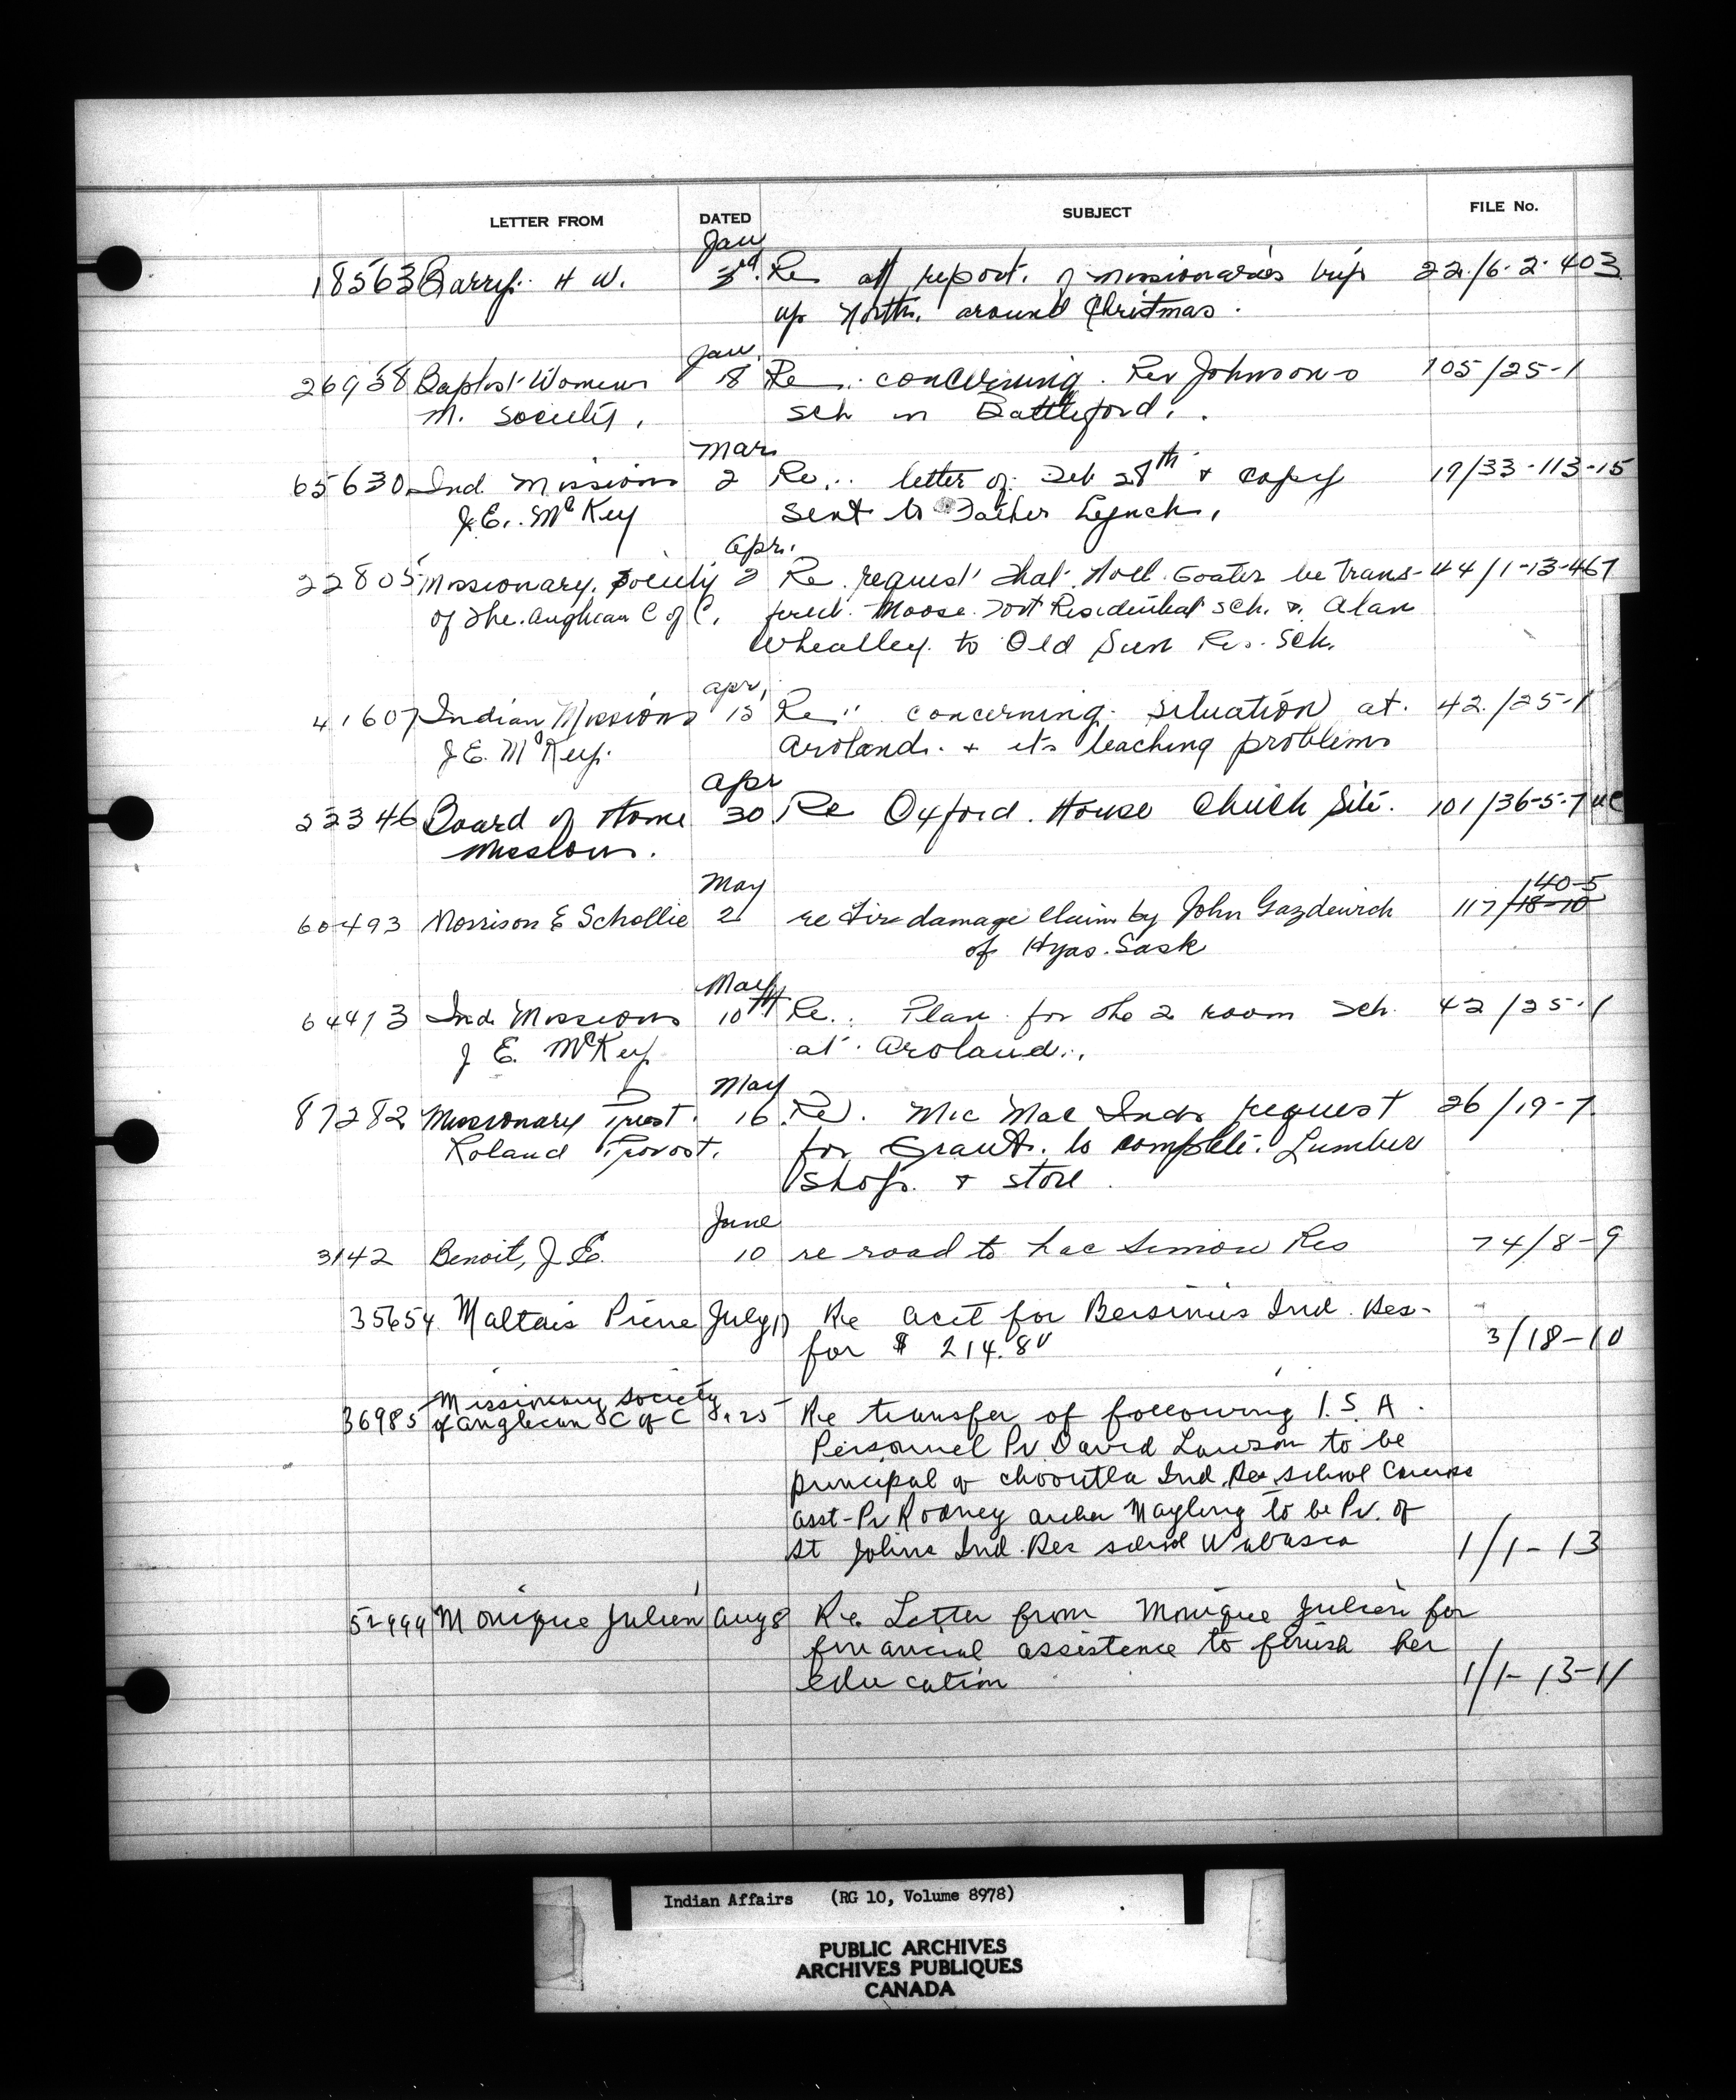 LETTER FROM DATED SUBJECT FILE No.
Jan
18563 Barry. H W. 3rd. Re att report. of missionaries trip 22/6-2-403
up North, around Christmas.
Jan.
26958 Baptist Womens 18 Re concerning. Rev Johnsons 105/25-1
M. Society. sch in Battleford.
Mar.
65630 Ind. Missions 2 Re. letter of Feb 28th & copy 19/33-113-15
J.E. McKey sent to Father Lynch.
Apr.
22805 Missionary Society 2 Re. request that Noel Goater be trans- 44/1-13-467
of the Anglican C of C. fered. Moose Fort Residential sch. & Alan
Wheatley. to Old Sun Res. Sch.
apr.
41607 Indian Missions 15 Re concerning situation at. 42./25-1
J E. McKey. Aroland. & its teaching problems
apr
22346 Board of Home 30 Re Oxford House Church Site. 101/36-5-7
Missions.
May 40-5
60493 Morrison & Schollie 2 re Fire damage claim by John 117/18-10
of Hyas. Sask
May
64413 Ind. Missions 10th Re. Plan for the 2 room sch. 42/25-1
J E. McKey at Aroland.
May
87282 Missionary Priest. 16 Re. Mic Mac Inds request 26/19-7
Roland Provost. for Grant. to complete. Lumber
shop. & store.
June
3142 Benoit, J E. 10 re road to Lac Simon Res 74/8-9
35654 Maltais Pierre July 17 Re acct for Bersimis Ind. Res-
for $ 214.80 3/18-10
Missionary Society
36985 of Anglican C of C 25 Re transfer of following I. S. A.
Personnel Pr. David Lawson to be
principal of Chooutla Ind Res school
asst-Pr Rodney Mayling to be Pr. of
St Johns Ind. Res school Wabasca 1/1-13
52999 Monique Julien Aug 8 Re Letter from Monique Julien for
financial assistence to finish her
education 1/1-13-11
Indian Affairs (RG 10, Volume 8978)
PUBLIC ARCHIVES
ARCHIVES PUBLIQUES
CANADA